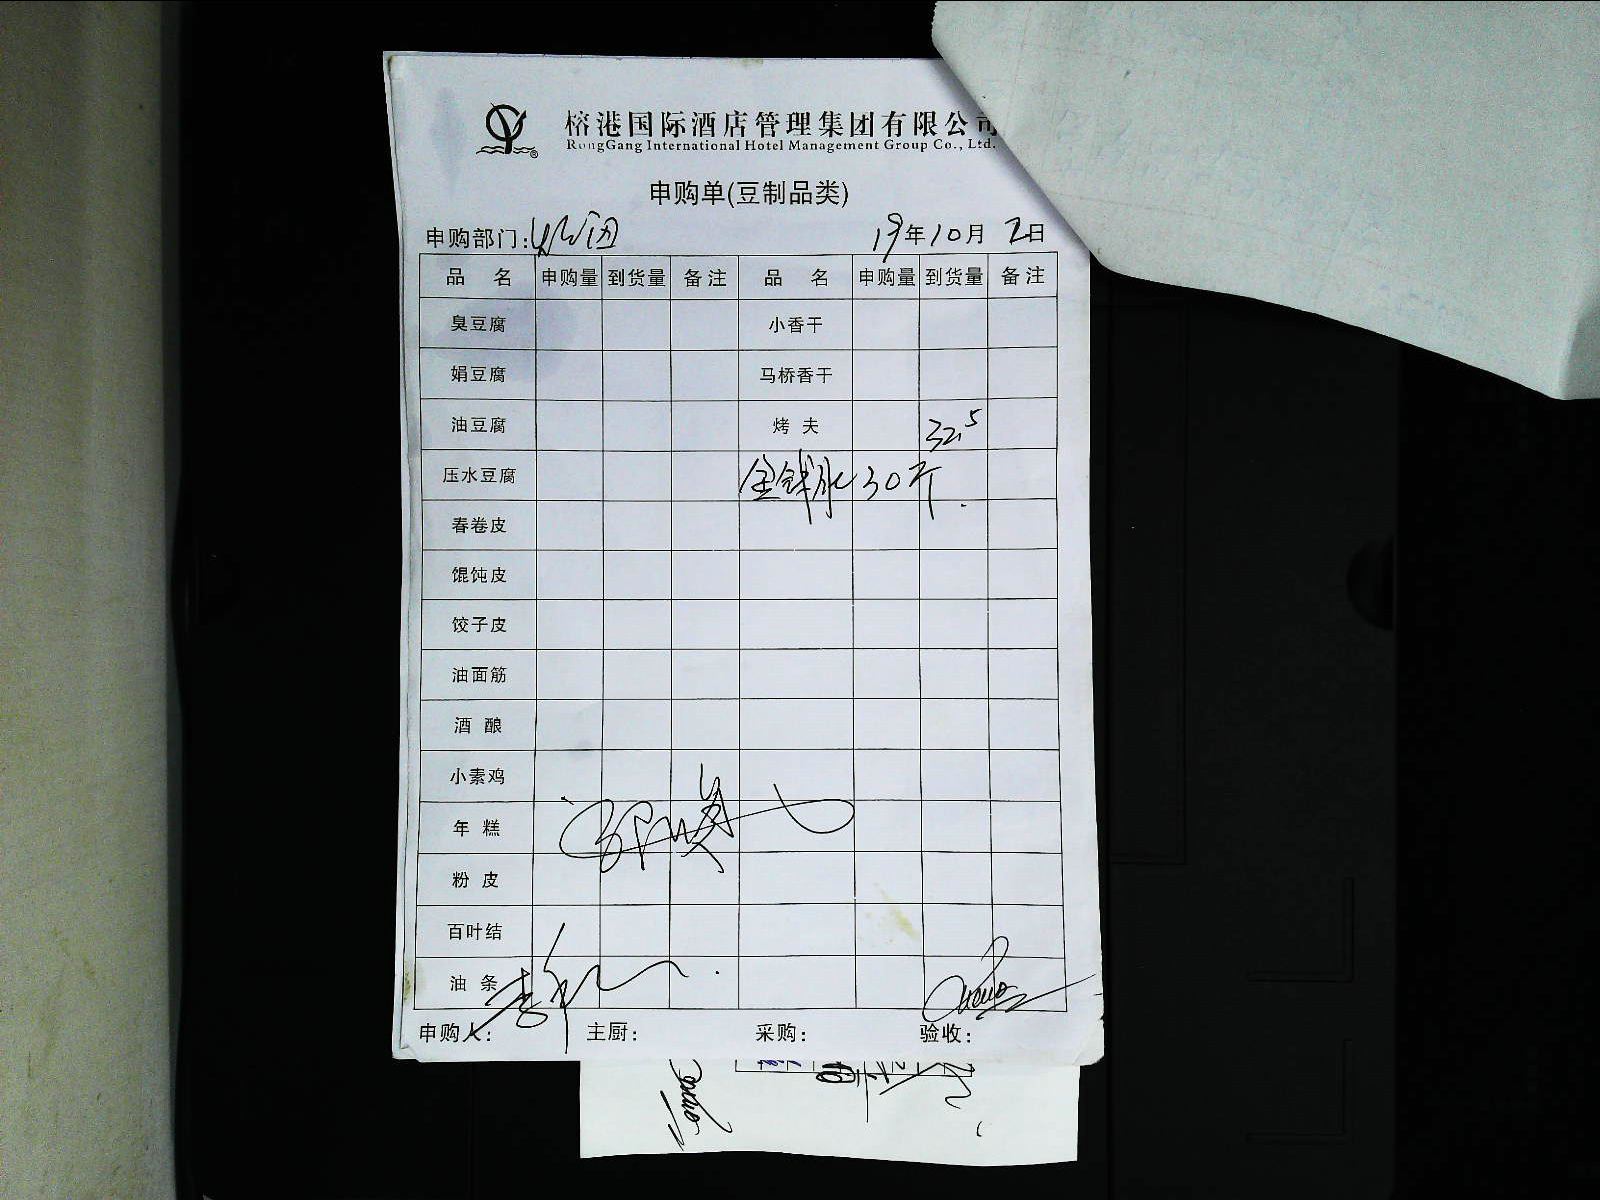 榕港国际酒店管理集团有限公司
RongGang International Hotel Management Group Co., Ltd.
申购单(豆制品类)
申购部门: 19年10月2日
品 名 申购量 到货量 备注 品 名 申购量 到货量 备注
臭豆腐 小香干
娟豆腐 马桥香干
油豆腐 烤 夫 32.5
压水豆腐 金钱肚 30斤
春卷皮
馄饨皮
饺子皮
油面筋
酒 酿
小素鸡
年 糕
粉 皮
百叶结
油 条
申购人: 主厨: 采购: 验收: